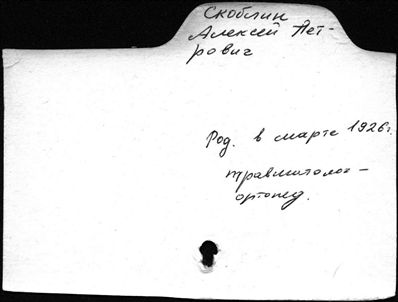 Скоблин
Алексей Пет-
рович
Род. в марте 1926г.
травматолог-
ортопед.